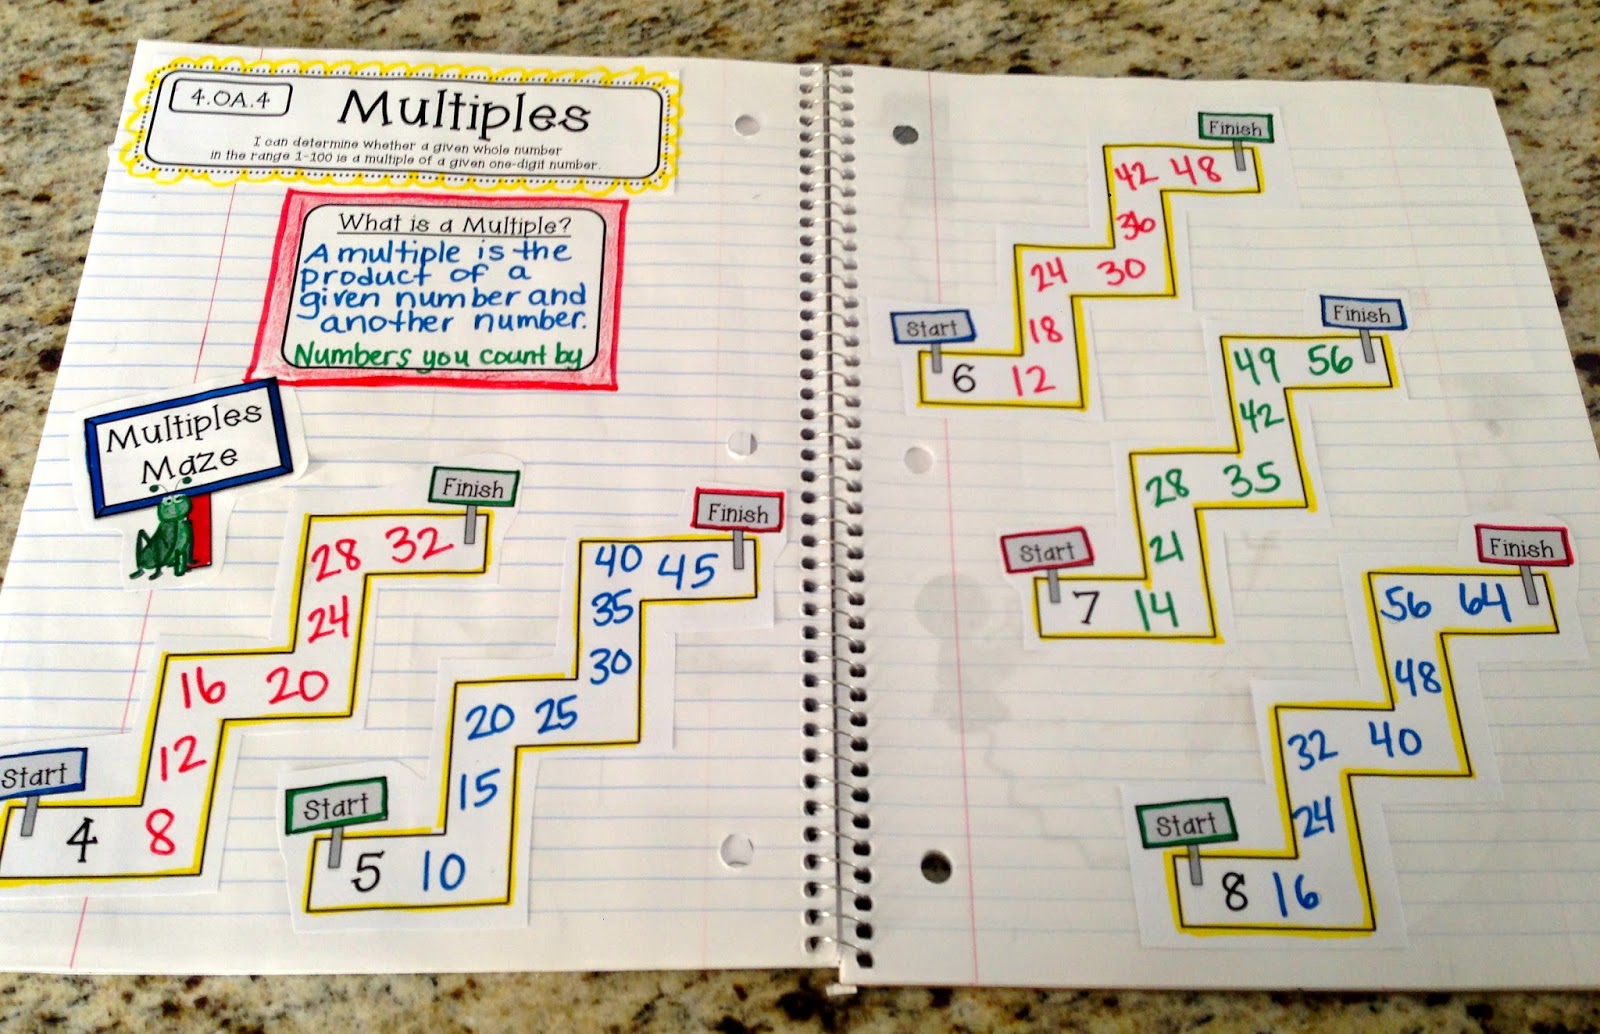 4.OA.4
Multiples
I can determine whether a given whole number
in the range 1-100 is a multiple of a given one-digit number.
What is a Multiple?
A multiple is the
product of a
given number and
another number.
Numbers you count by
Multiples
Maze
Finish
28 32
24
16 20
12
Start
4 8
Finish
40 45
35
30
20 25
15
Start
5 10
Finish
42 48
36
24 30
18
Start
6 12
Finish
49 56
42
28 35
21
Start
7 14
Finish
56 64
48
32 40
24
Start
8 16